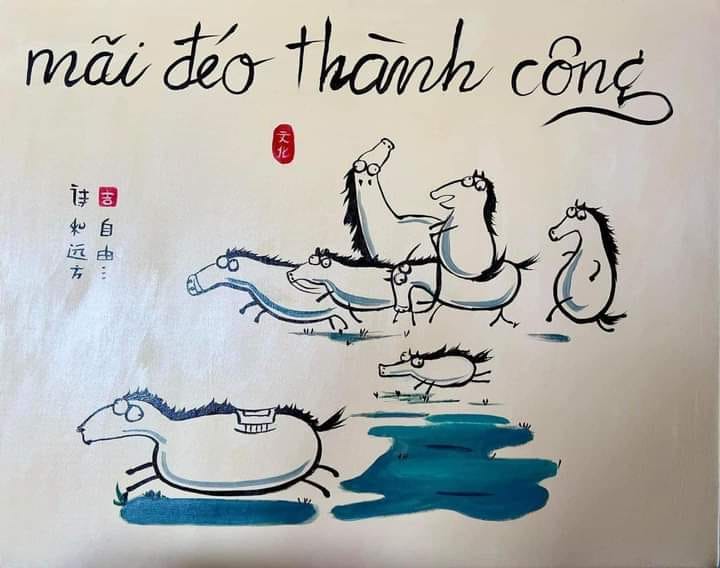 mãi đéo thành công
文化
吉
自由:::
诗和远方